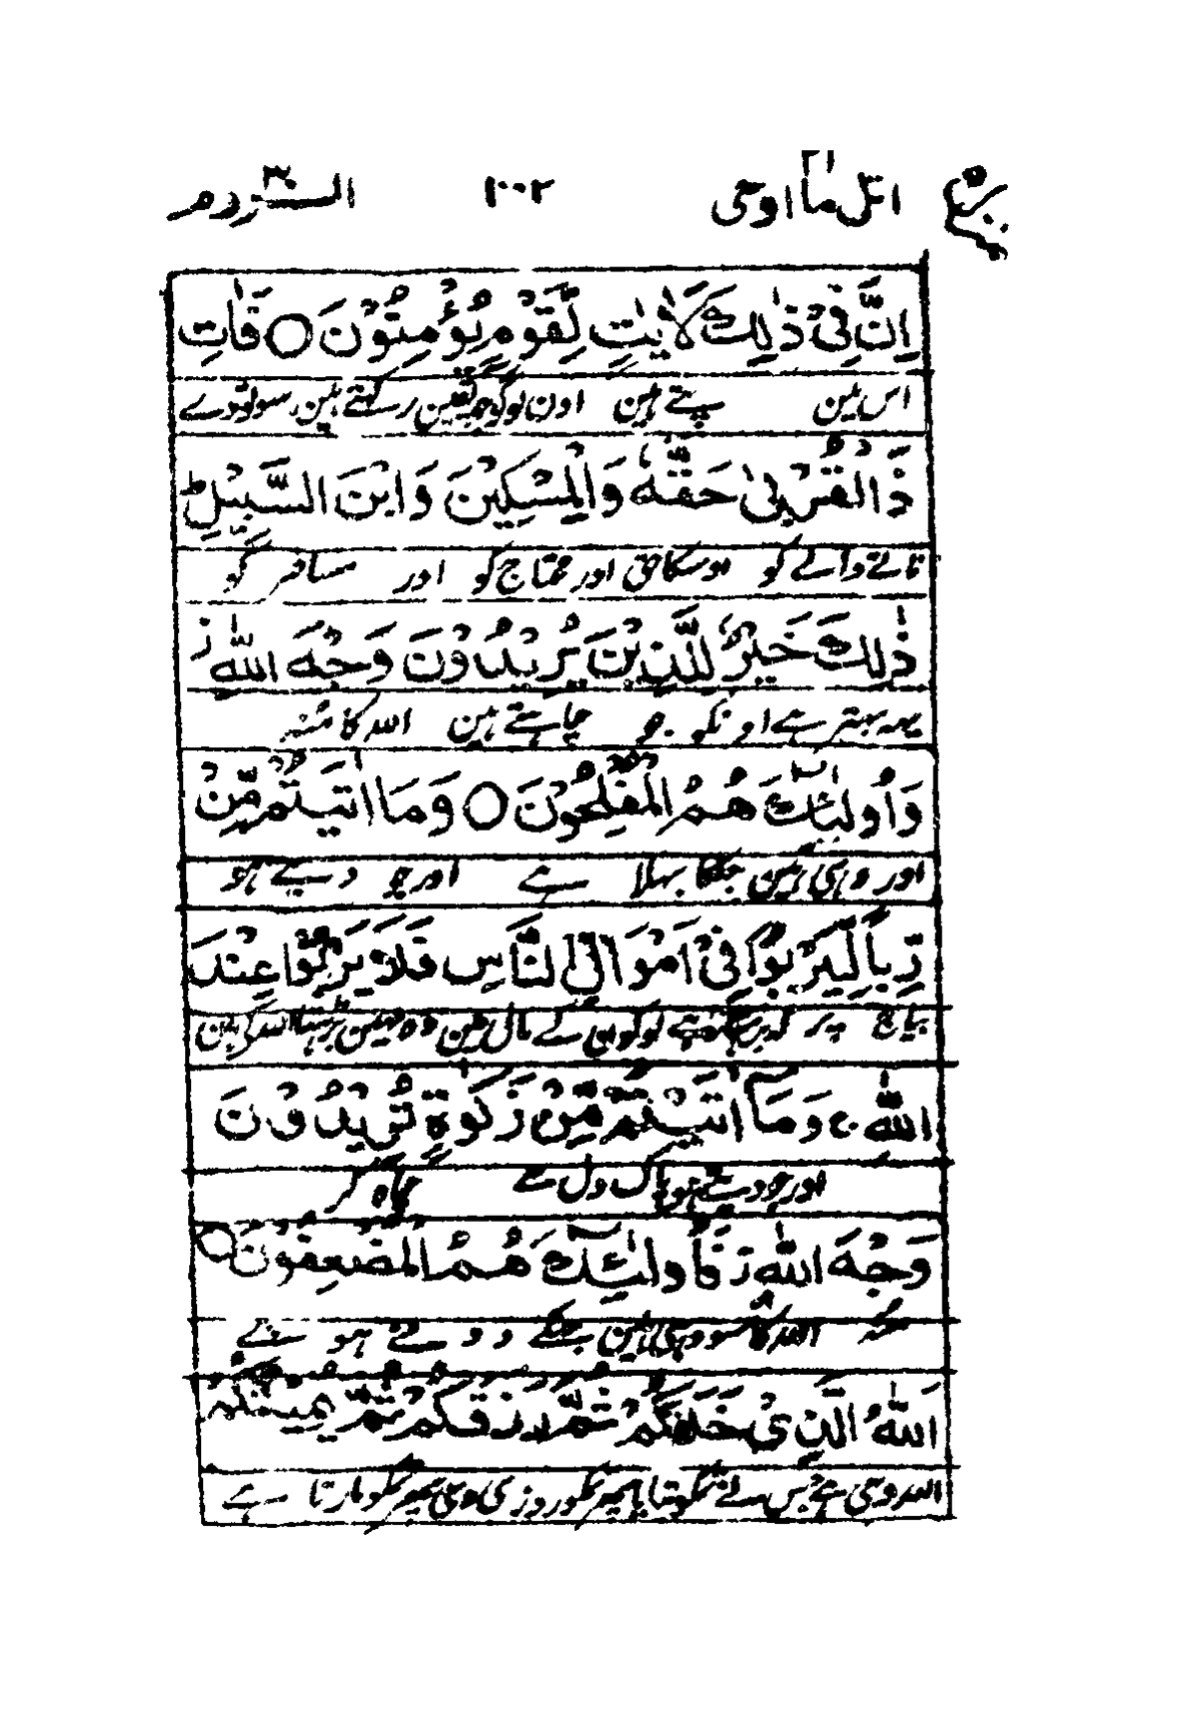 اتل ما اوحی ۲۱ ۱۰۰۲ الروم ۳۰
اِنَّ فِیْ ذٰلِكَ لَاٰیٰتٍ لِّقَوْمٍ یُّؤْمِنُوْنَ ○ فَاٰتِ
اس مین پتے ہین اون لوگوں جو یقین رکھتے ہین سو تو دے
ذَا الْقُرْبٰی حَقَّهٗ وَالْمِسْكِیْنَ وَابْنَ السَّبِیْلِ ؕ
ناتے والے کو اوسکا حق اور محتاج کو اور مسافر کو
ذٰلِكَ خَیْرٌ لِّلَّذِیْنَ یُرِیْدُوْنَ وَجْهَ اللّٰهِ ز
یہہ بہتر ہے اونکو جو چاہتے ہین اللہ کا منہ
وَاُولٰٓئِكَ هُمُ الْمُفْلِحُوْنَ ○ وَمَا اٰتَیْتُمْ مِّنْ
اور وہی ہین جنکا بھلا ہے اور جو دیتے ہو
رِّبًا لِّیَرْبُوَا۠ فِیْ اَمْوَالِ النَّاسِ فَلَا یَرْبُوْا عِنْدَ
بیاج پر کہ بڑھتا رہے لوگوں کے مال مین وہ نہین بڑھتا اللہ کے ہان
اللّٰهِ ۚ وَمَآ اٰتَیْتُمْ مِّنْ زَكٰوةٍ تُرِیْدُوْنَ
اور جو دیتے ہو پاک دل سے چاہ کر
وَجْهَ اللّٰهِ ز فَاُولٰٓئِكَ هُمُ الْمُضْعِفُوْنَ ○
منہ اللہ کا سو وہی ہین جنکے دونے ہوئے
اَللّٰهُ الَّذِیْ خَلَقَكُمْ ثُمَّ رَزَقَكُمْ ثُمَّ یُمِیْتُكُمْ
اللہ وہی ہے جس نے تمکو بنایا پھر تمکو روزی دی پھر تمکو مارتا ہے